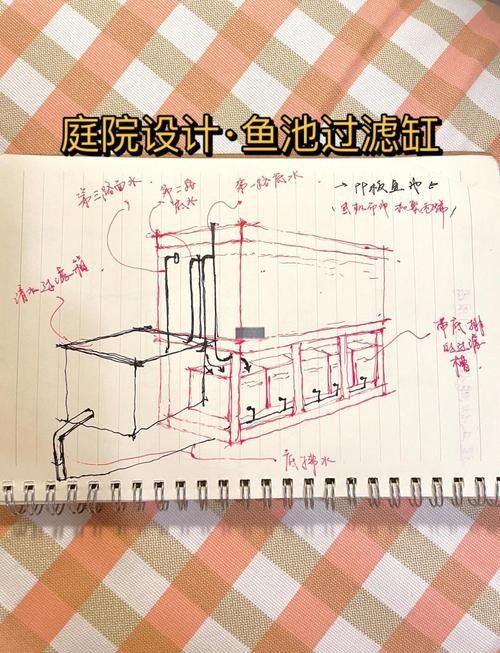 庭院设计·鱼池过滤缸
第三路面水
第二路
底水
第一路底水
→PP板鱼池←
清水过滤箱
带底排
的过滤
槽
底排水